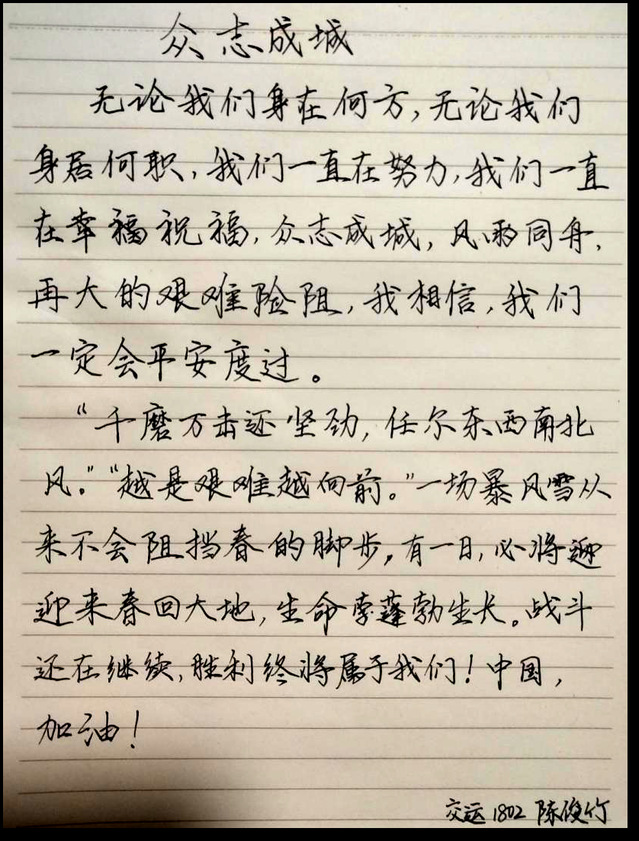 众志成城
无论我们身在何方,无论我们
身居何职,我们一直在努力,我们一直
在幸福祝福,众志成城,风雨同舟,
再大的艰难险阻,我相信,我们
一定会平安度过。
“千磨万击还坚劲,任尔东西南北
风。”“越是艰难越向前。”一场暴风雪从
来不会阻挡春的脚步,有一日,必将迎
迎来春回大地,生命蓬勃生长。战斗
还在继续,胜利终将属于我们!中国,
加油!
交运1802 陈俊竹